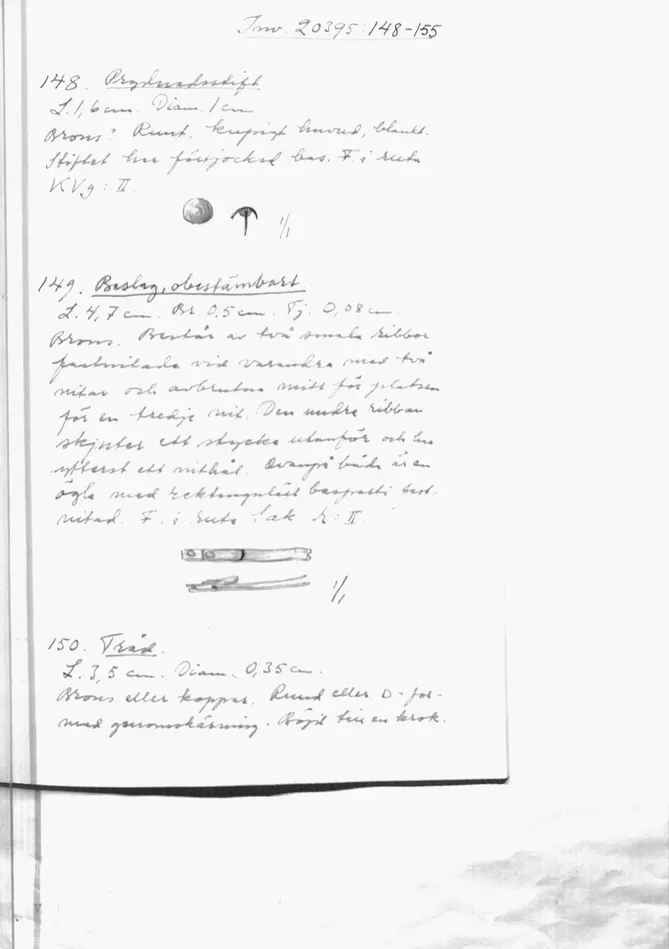 Inv. 20395:148-155
148. Prydnadsstift.
L. 1,6 cm. Diam. 1 cm.
Brons? Runt, kupigt huvud, blankt.
Stiftet har förtjockad bas. F. i ruta
KVg: II.
1/1
149. Beslag, obestämbart.
L. 4,7 cm. Br. 0,5 cm. Tj. 0,08 cm.
Brons. Består av två smala ribbor
fastnitade vid varandra med två
nitar och avbrutna mitt för platsen
för en tredje nit. Den undre ribban
skjuter ett stycke utanför och har
ytterst ett nithål. Ovanpå båda är en
ögla med rektangulärt basparti fast-
nitad. F. i ruta : II.
1/1
150. Tråd.
L. 3,5 cm. Diam. 0,35 cm.
Brons eller koppar. Rund eller D-for-
mad genomskärning. Böjd till en krok.